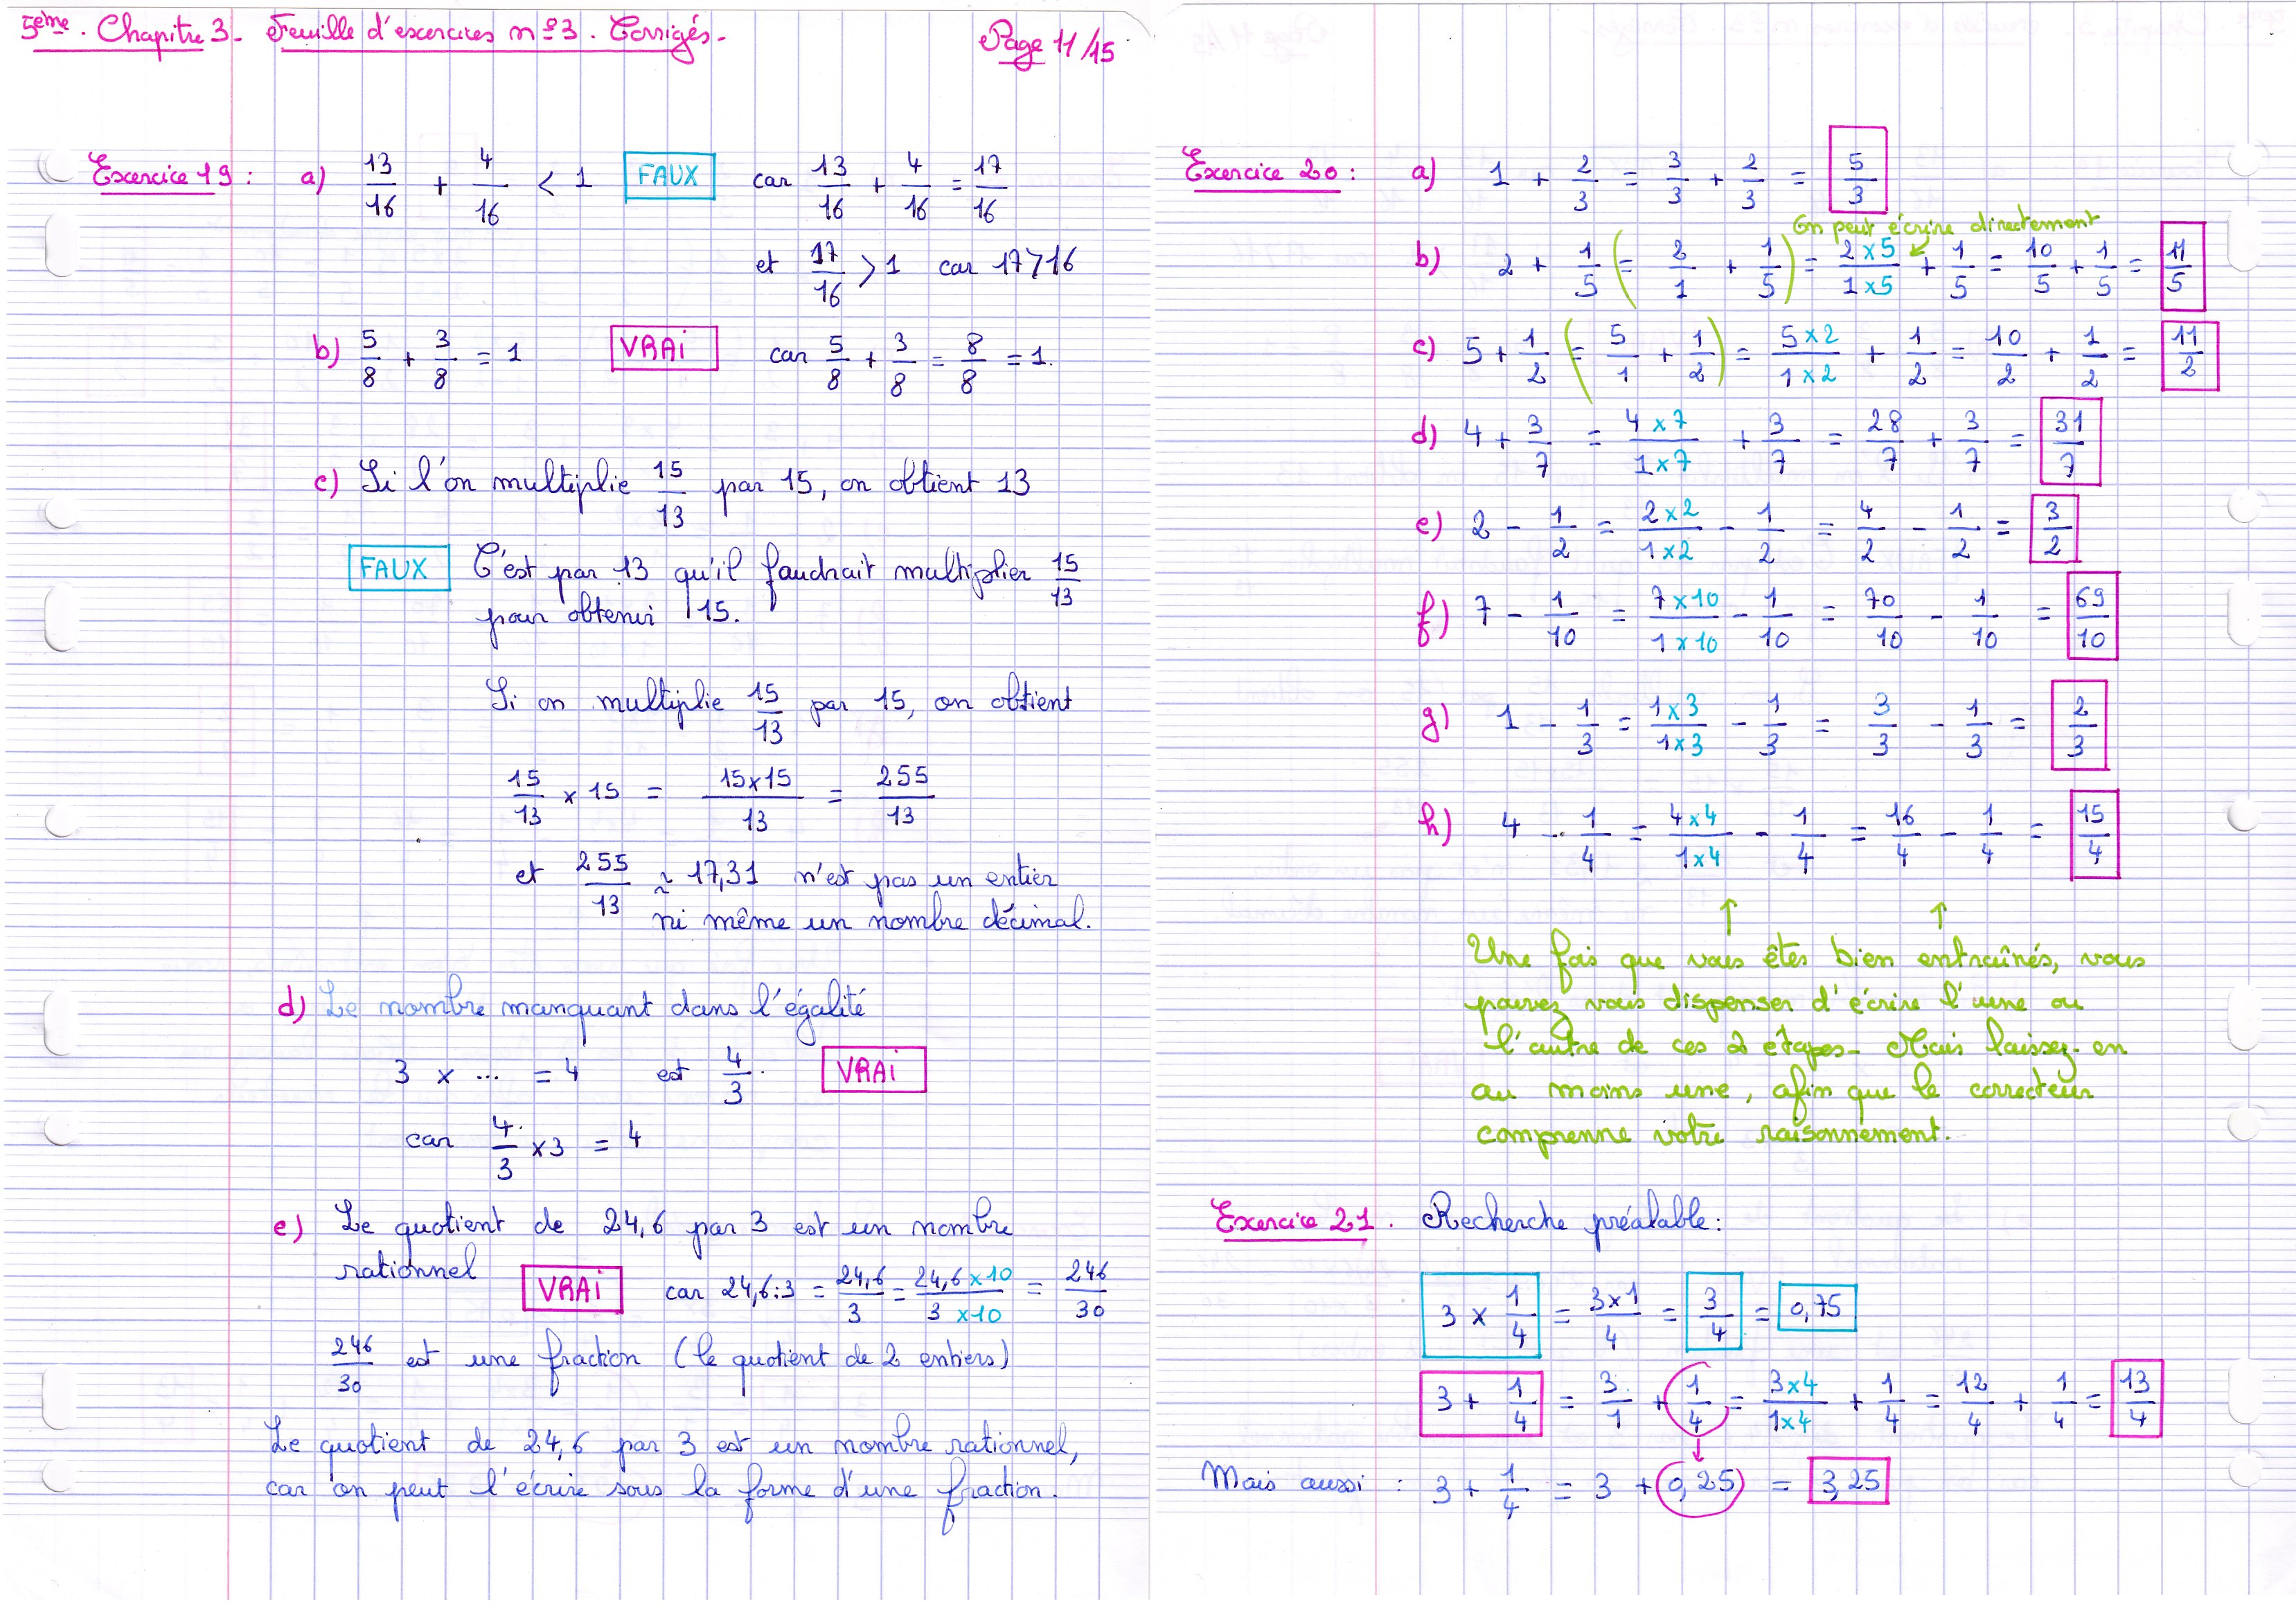 5ème. Chapitre 3 - Feuille d'exercices n°3. Corrigés. Page 11/15
Exercice 19 : a) 13/16 + 4/16 < 1 FAUX car 13/16 + 4/16 = 17/16
et 17/16 > 1 car 17 > 16
b) 5/8 + 3/8 = 1 VRAI car 5/8 + 3/8 = 8/8 = 1.
c) Si l'on multiplie 15/13 par 15, on obtient 13
FAUX C'est par 13 qu'il faudrait multiplier 15/13
pour obtenir 15.
Si on multiplie 15/13 par 15, on obtient
15/13 × 15 = 15×15/13 = 255/13
et 255/13 ≈ 17,31 n'est pas un entier
ni même un nombre décimal.
d) Le nombre manquant dans l'égalité
3 × ... = 4 est 4/3. VRAI
car 4/3 × 3 = 4
e) Le quotient de 24,6 par 3 est un nombre
rationnel VRAI car 24,6 : 3 = 24,6/3 = 24,6 × 10/3 × 10 = 246/30
246/30 est une fraction (le quotient de 2 entiers)
Le quotient de 24,6 par 3 est un nombre rationnel,
car on peut l'écrire sous la forme d'une fraction.
Exercice 20 : a) 1 + 2/3 = 3/3 + 2/3 = 5/3
On peut écrire directement
b) 2 + 1/5 (= 2/1 + 1/5) = 2×5/1×5 + 1/5 = 10/5 + 1/5 = 11/5
c) 5 + 1/2 (= 5/1 + 1/2) = 5×2/1×2 + 1/2 = 10/2 + 1/2 = 11/2
d) 4 + 3/7 = 4×7/1×7 + 3/7 = 28/7 + 3/7 = 31/7
e) 2 - 1/2 = 2×2/1×2 - 1/2 = 4/2 - 1/2 = 3/2
f) 7 - 1/10 = 7×10/1×10 - 1/10 = 70/10 - 1/10 = 69/10
g) 1 - 1/3 = 1×3/1×3 - 1/3 = 3/3 - 1/3 = 2/3
h) 4 - 1/4 = 4×4/1×4 - 1/4 = 16/4 - 1/4 = 15/4
↑ ↑
Une fois que vous êtes bien entraînés, vous
pouvez vous dispenser d'écrire l'une ou
l'autre de ces 2 étapes - Mais laissez-en
au moins une, afin que le correcteur
comprenne votre raisonnement.
Exercice 21. Recherche préalable :
3 × 1/4 = 3×1/4 = 3/4 = 0,75
3 + 1/4 = 3/1 + 1/4 = 3×4/1×4 + 1/4 = 12/4 + 1/4 = 13/4
Mais aussi : 3 + 1/4 = 3 + 0,25 = 3,25